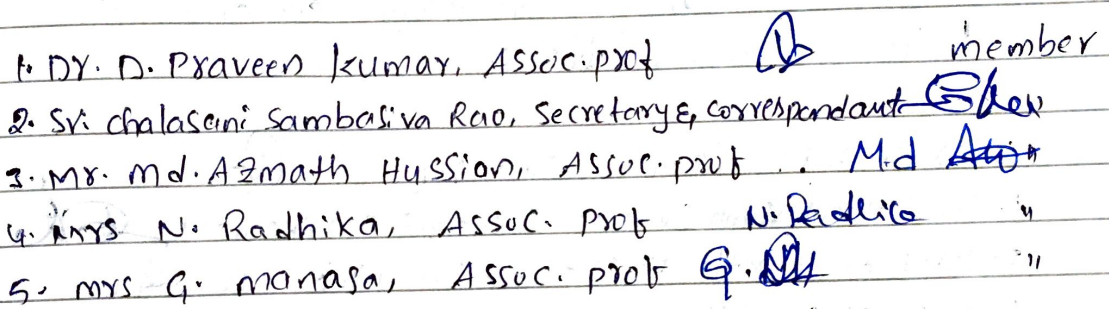 1. Dr. D. Praveen kumar, Assoc. prof member
2. Sri chalasani Sambasiva Rao, Secretary & Correspondant
3. Mr. Md. Azmath Hussion, Assoc. prof .. M.d "
4. Mrs N. Radhika, Assoc. Prof N. Radhica "
5. Mrs G. manasa, Assoc. prof G. "